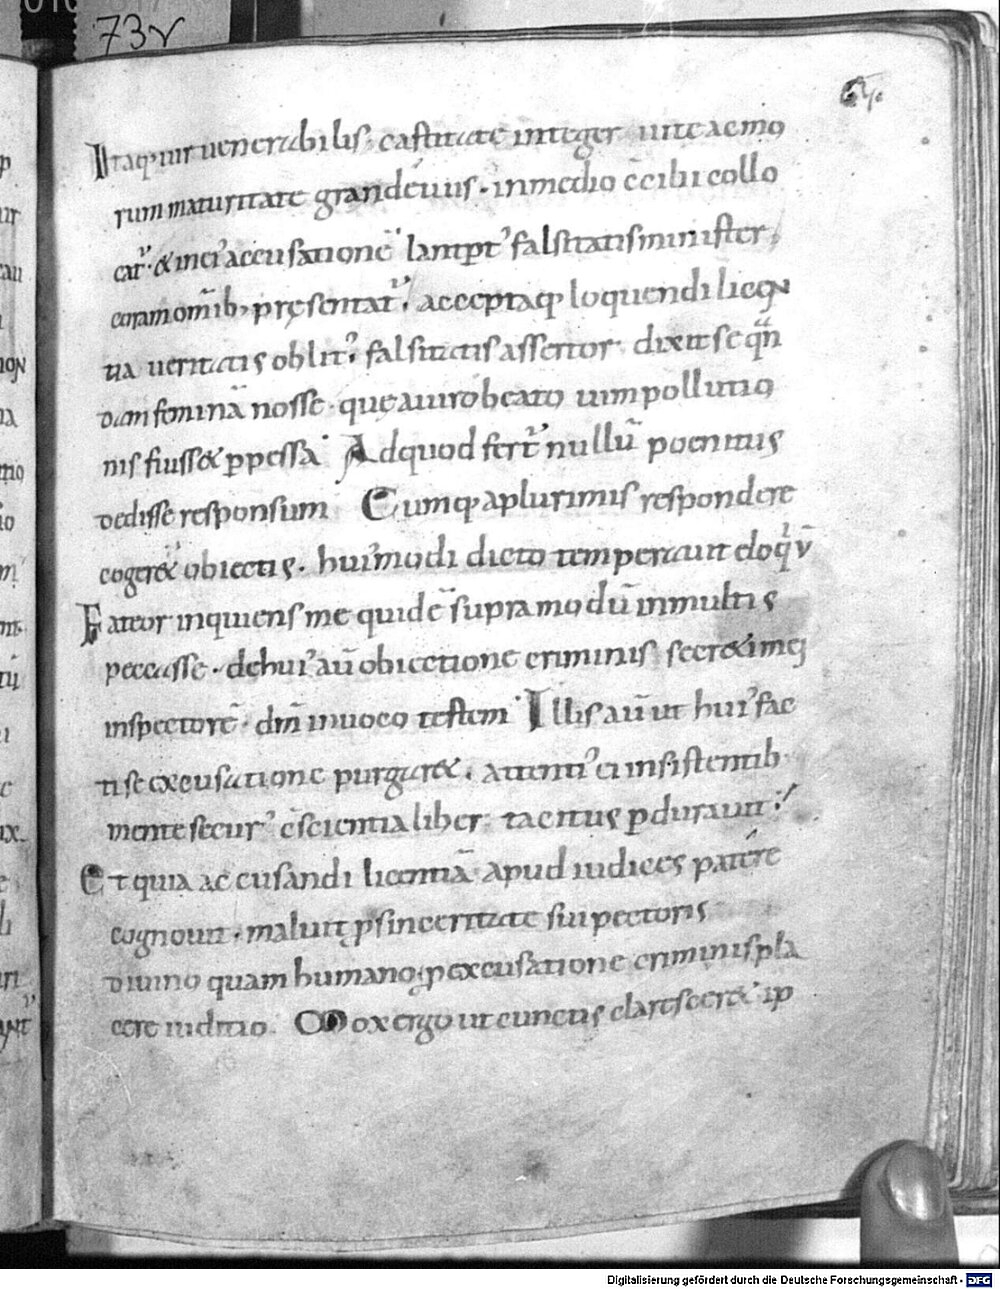 73v
Itaq; uir uenerabilis, castitate integer uitae ac mo
rum maturitate grandeuus. in medio c̄cilii collo
cat᷑. & mei᷒ accusatione lampt᷒ falsitatis minister,
coram omib; pręsentat᷑. acceptaq; loquendi licen
tia ueritatis oblit᷒, falsitatis assertor dixit se qn̄
dam feminā nosse. quę a uiro beato uim pollutio
nis fuiss& ꝑpessa. Ad quod fert᷑ nullū poenitus
dedisse responsum. Cumq; a plurimis respondere
coger&᷑ obiectis. hui᷒modi dicto temperauit eloqⁱū
Fateor inquiens me quidē supra modū in multis
peccasse. de hui᷒ aū obiectione criminis secr&i mei
inspectorē. dn̄m inuoco testem. Illis aū ut hui᷒ fac
ti se excusatione purgar&, attenti᷒ ei insistentib;
mente secur᷒ c̄scientia liber, tacitus ꝑdurauit.
Et quia accusandi licentiā apud iudices patére
cognouit. maluit p sinceritate sui pectoris
diuino quam humano p excusatione criminis pla
cere iuditio. Mox ergo ut cunctis claresceret ip
Digitalisierung gefördert durch die Deutsche Forschungsgemeinschaft - DFG